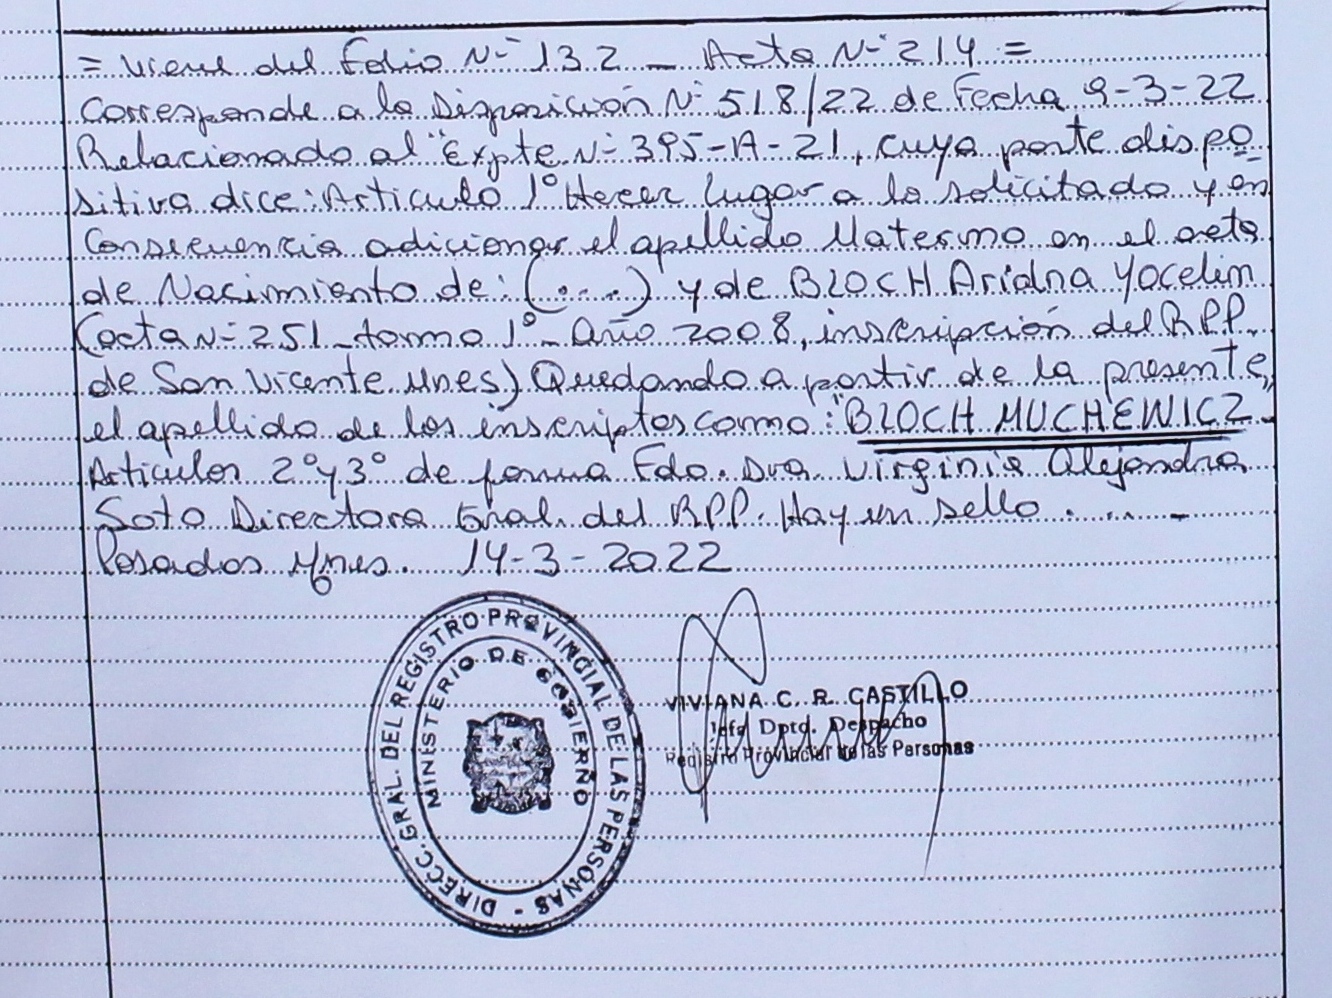 = Viene del Folio N° 132 - Acta N° 214 =
Corresponde a la Disposición N° 518/22 de Fecha 9-3-22
Relacionado al "Expte. N° 395-A-21, cuya parte dispo
sitiva dice: Articulo 1° Hacer lugar a lo solicitado y en
Consecuencia adicionar el apellido Materno en el acta
de Nacimiento de: (....) y de BLOCH Ariadna Yocelin
(acta N° 251 - tomo 1° - Año 2008, inscripción del R.P.P.
de San Vicente Mnes.) Quedando a partir de la presente,
el apellido de los inscriptos como: "BLOCH MUCHEWICZ
Articulos 2° y 3° de forma Fdo. Dra. Virginia Alejandra
Soto Directora Gral. del R.P.P. Hay un sello . ... -
Posadas Mnes. 14-3-2022
DIRECC. GRAL. DEL REGISTRO PROVINCIAL DE LAS PERSONAS -
MINISTERIO DE GOBIERNO
VIVIANA C. R. CASTILLO
Jefa Dpto. Despacho
Registro Provincial de las Personas